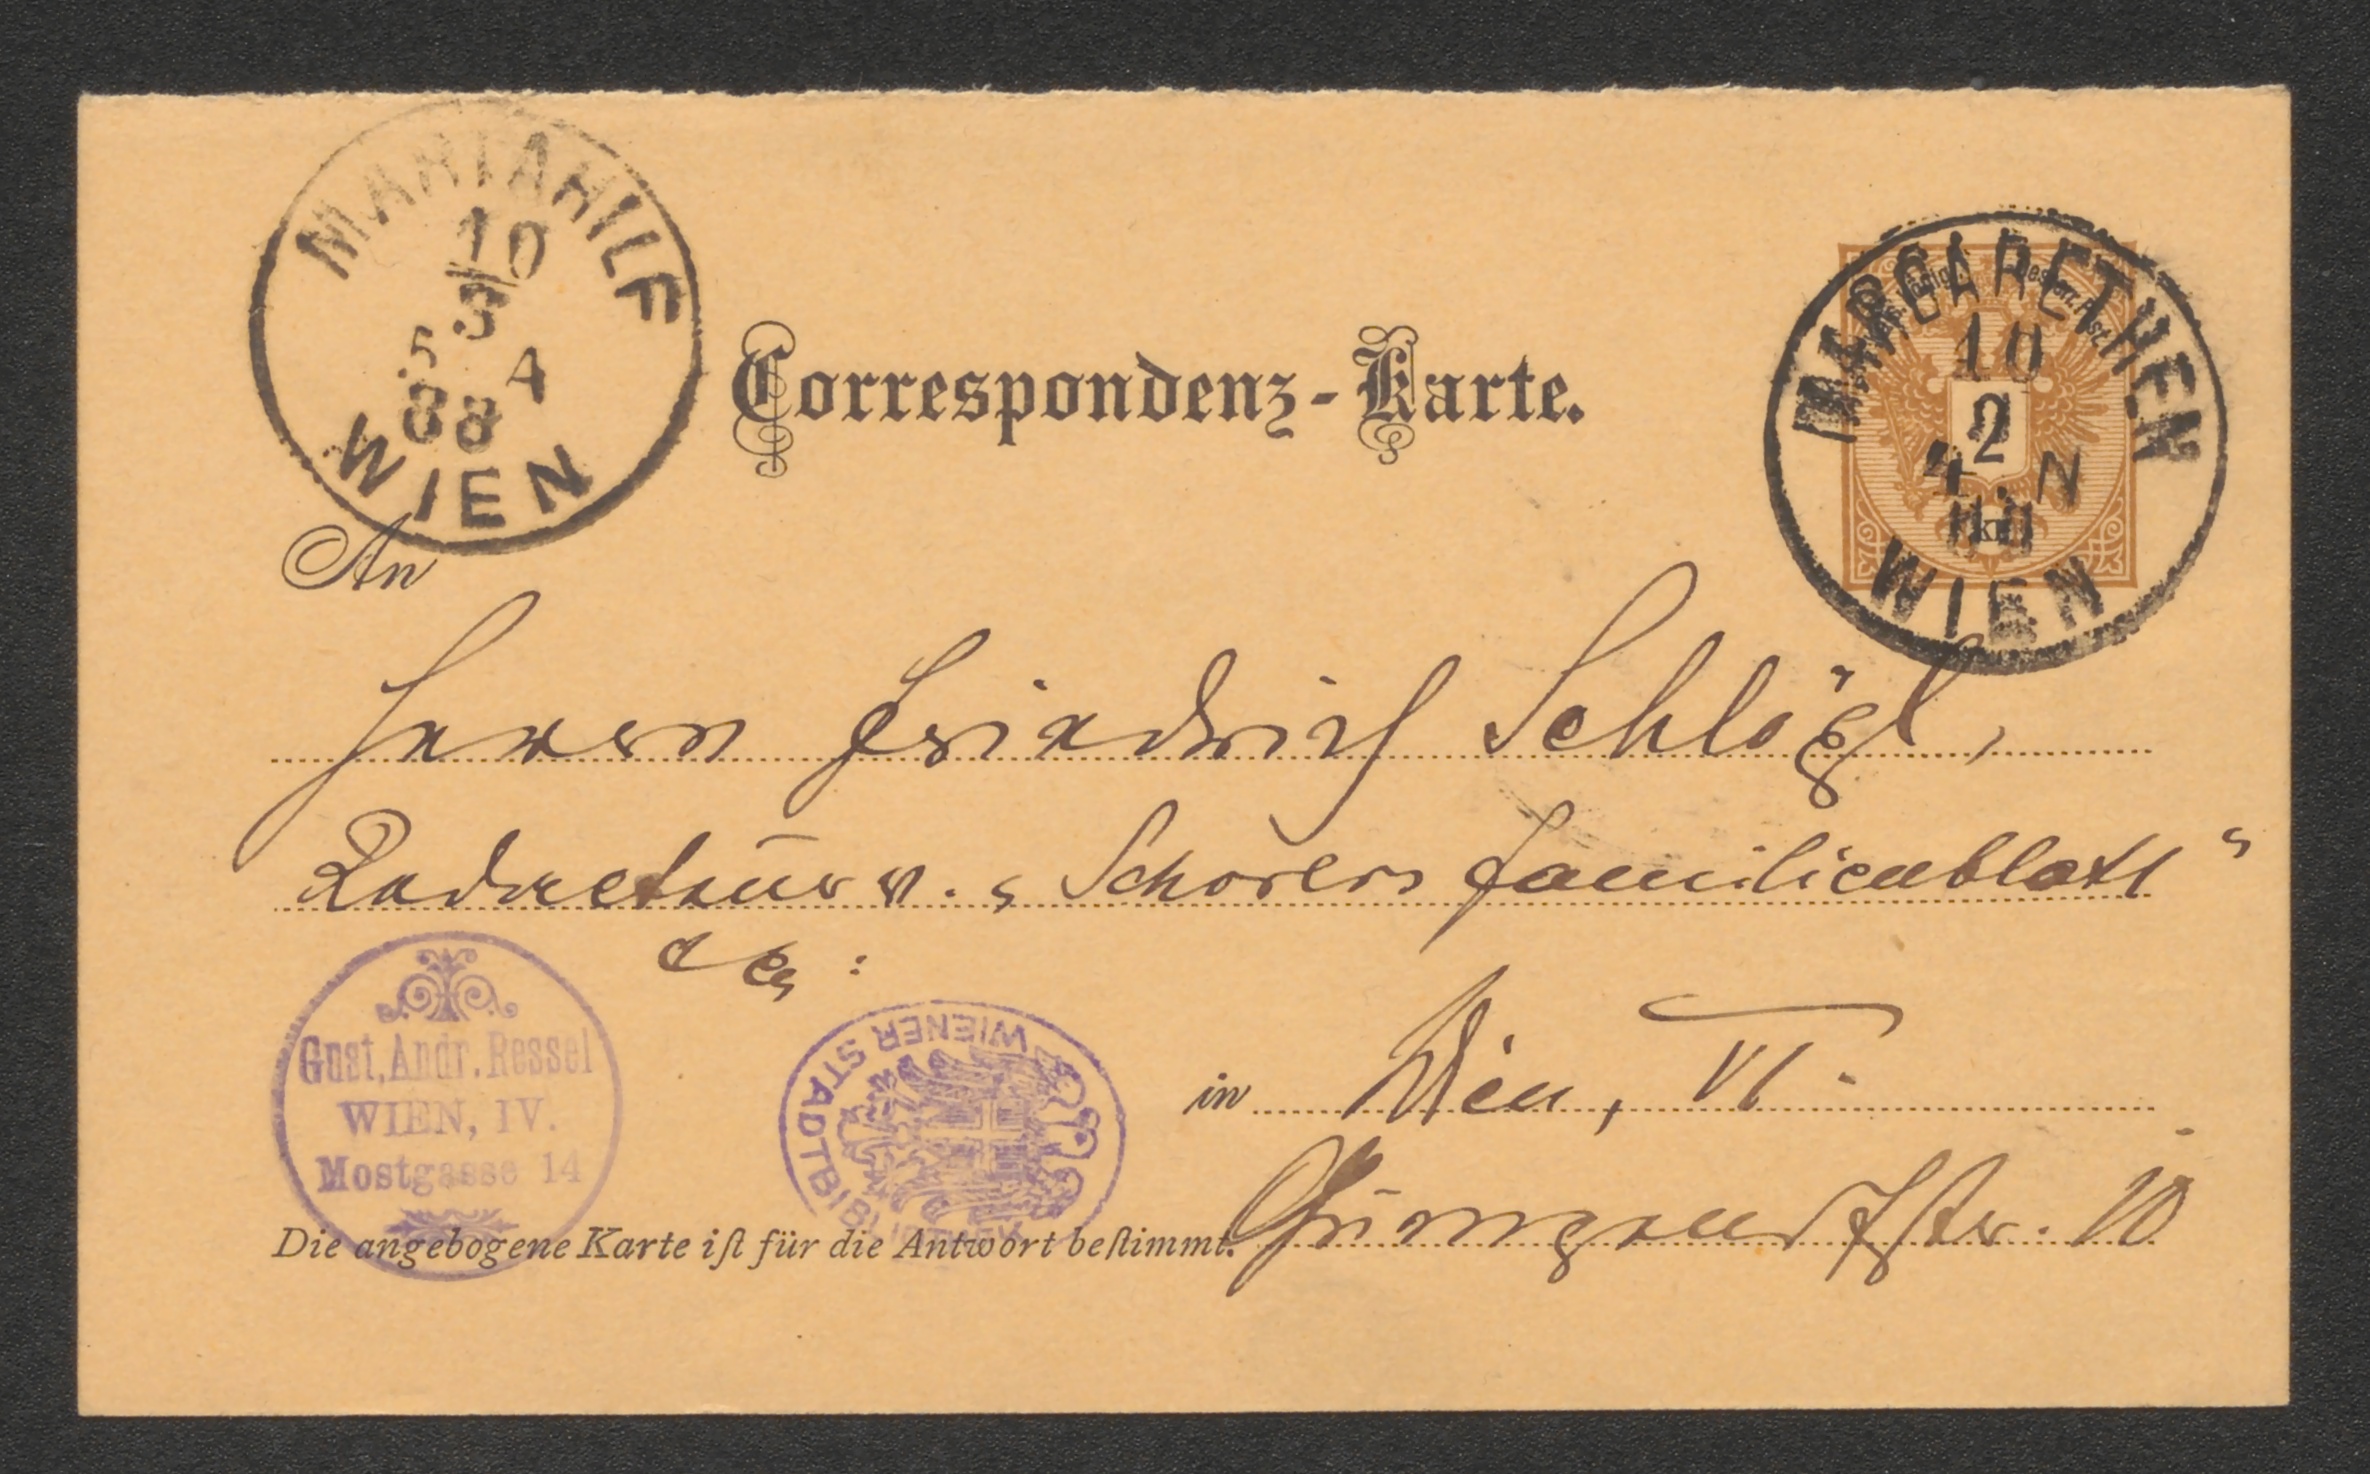 MARIAHILF
10
3
5 A
88
WIEN
Correspondenz-Karte.
MARGARETHEN
10
2
4. N
88
WIEN
An
Herrn Friedrich Schlögl,
Redacteur v. „Schorers Familienblatt“
in Wien, VI.
Gumpendfstr. 10
Gust. Andr. Ressel
WIEN, IV.
Mostgasse 14
WIENER STADTBIBLIOTHEK
Die angebogene Karte iſt für die Antwort beſtimmt.